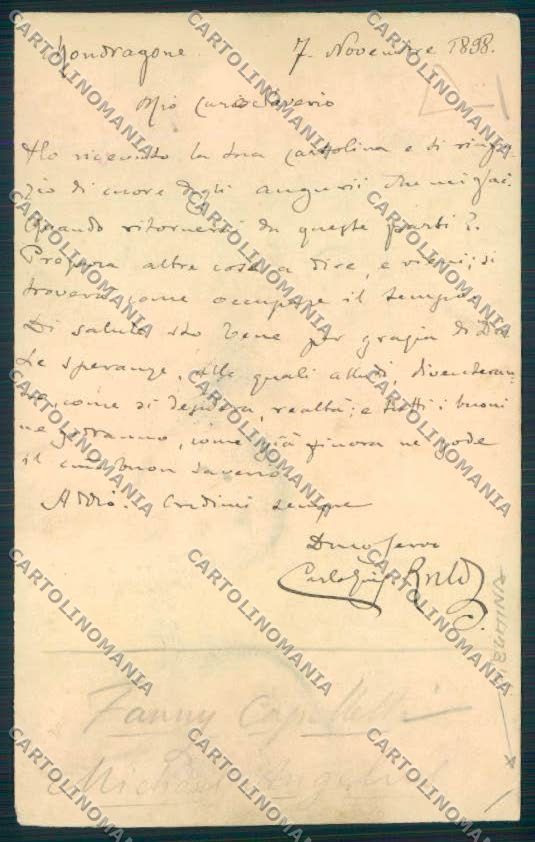 Mondragone 7. Novembre 1898.
Mio caro Saverio
Ho ricevuto la tua cartolina e ti ringra-
zio di cuore degli augurii che mi fai.
Quando ritornerai da queste parti?
Prepara altre cose a dire, e vieni; si
troverà come occupare il tempo.
Di salute sto bene per grazia di Dio.
Le speranze, alle quali alludi, diventeran-
no, come si desidera, realtà; e tutti i buoni
ne godranno, come già finora ne gode
il mio buon Saverio.
Addio. Credimi sempre
Carlo
Fanny Capelletti
CARTOLINOMANIA